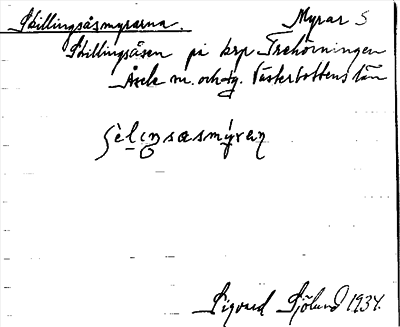 Skillingsåsmyrarna. Myrar S
Skillingsåsen på krp Trehörningen
Åsele m. och tg. Västerbottens län
Sigvard Sjölund 1934.